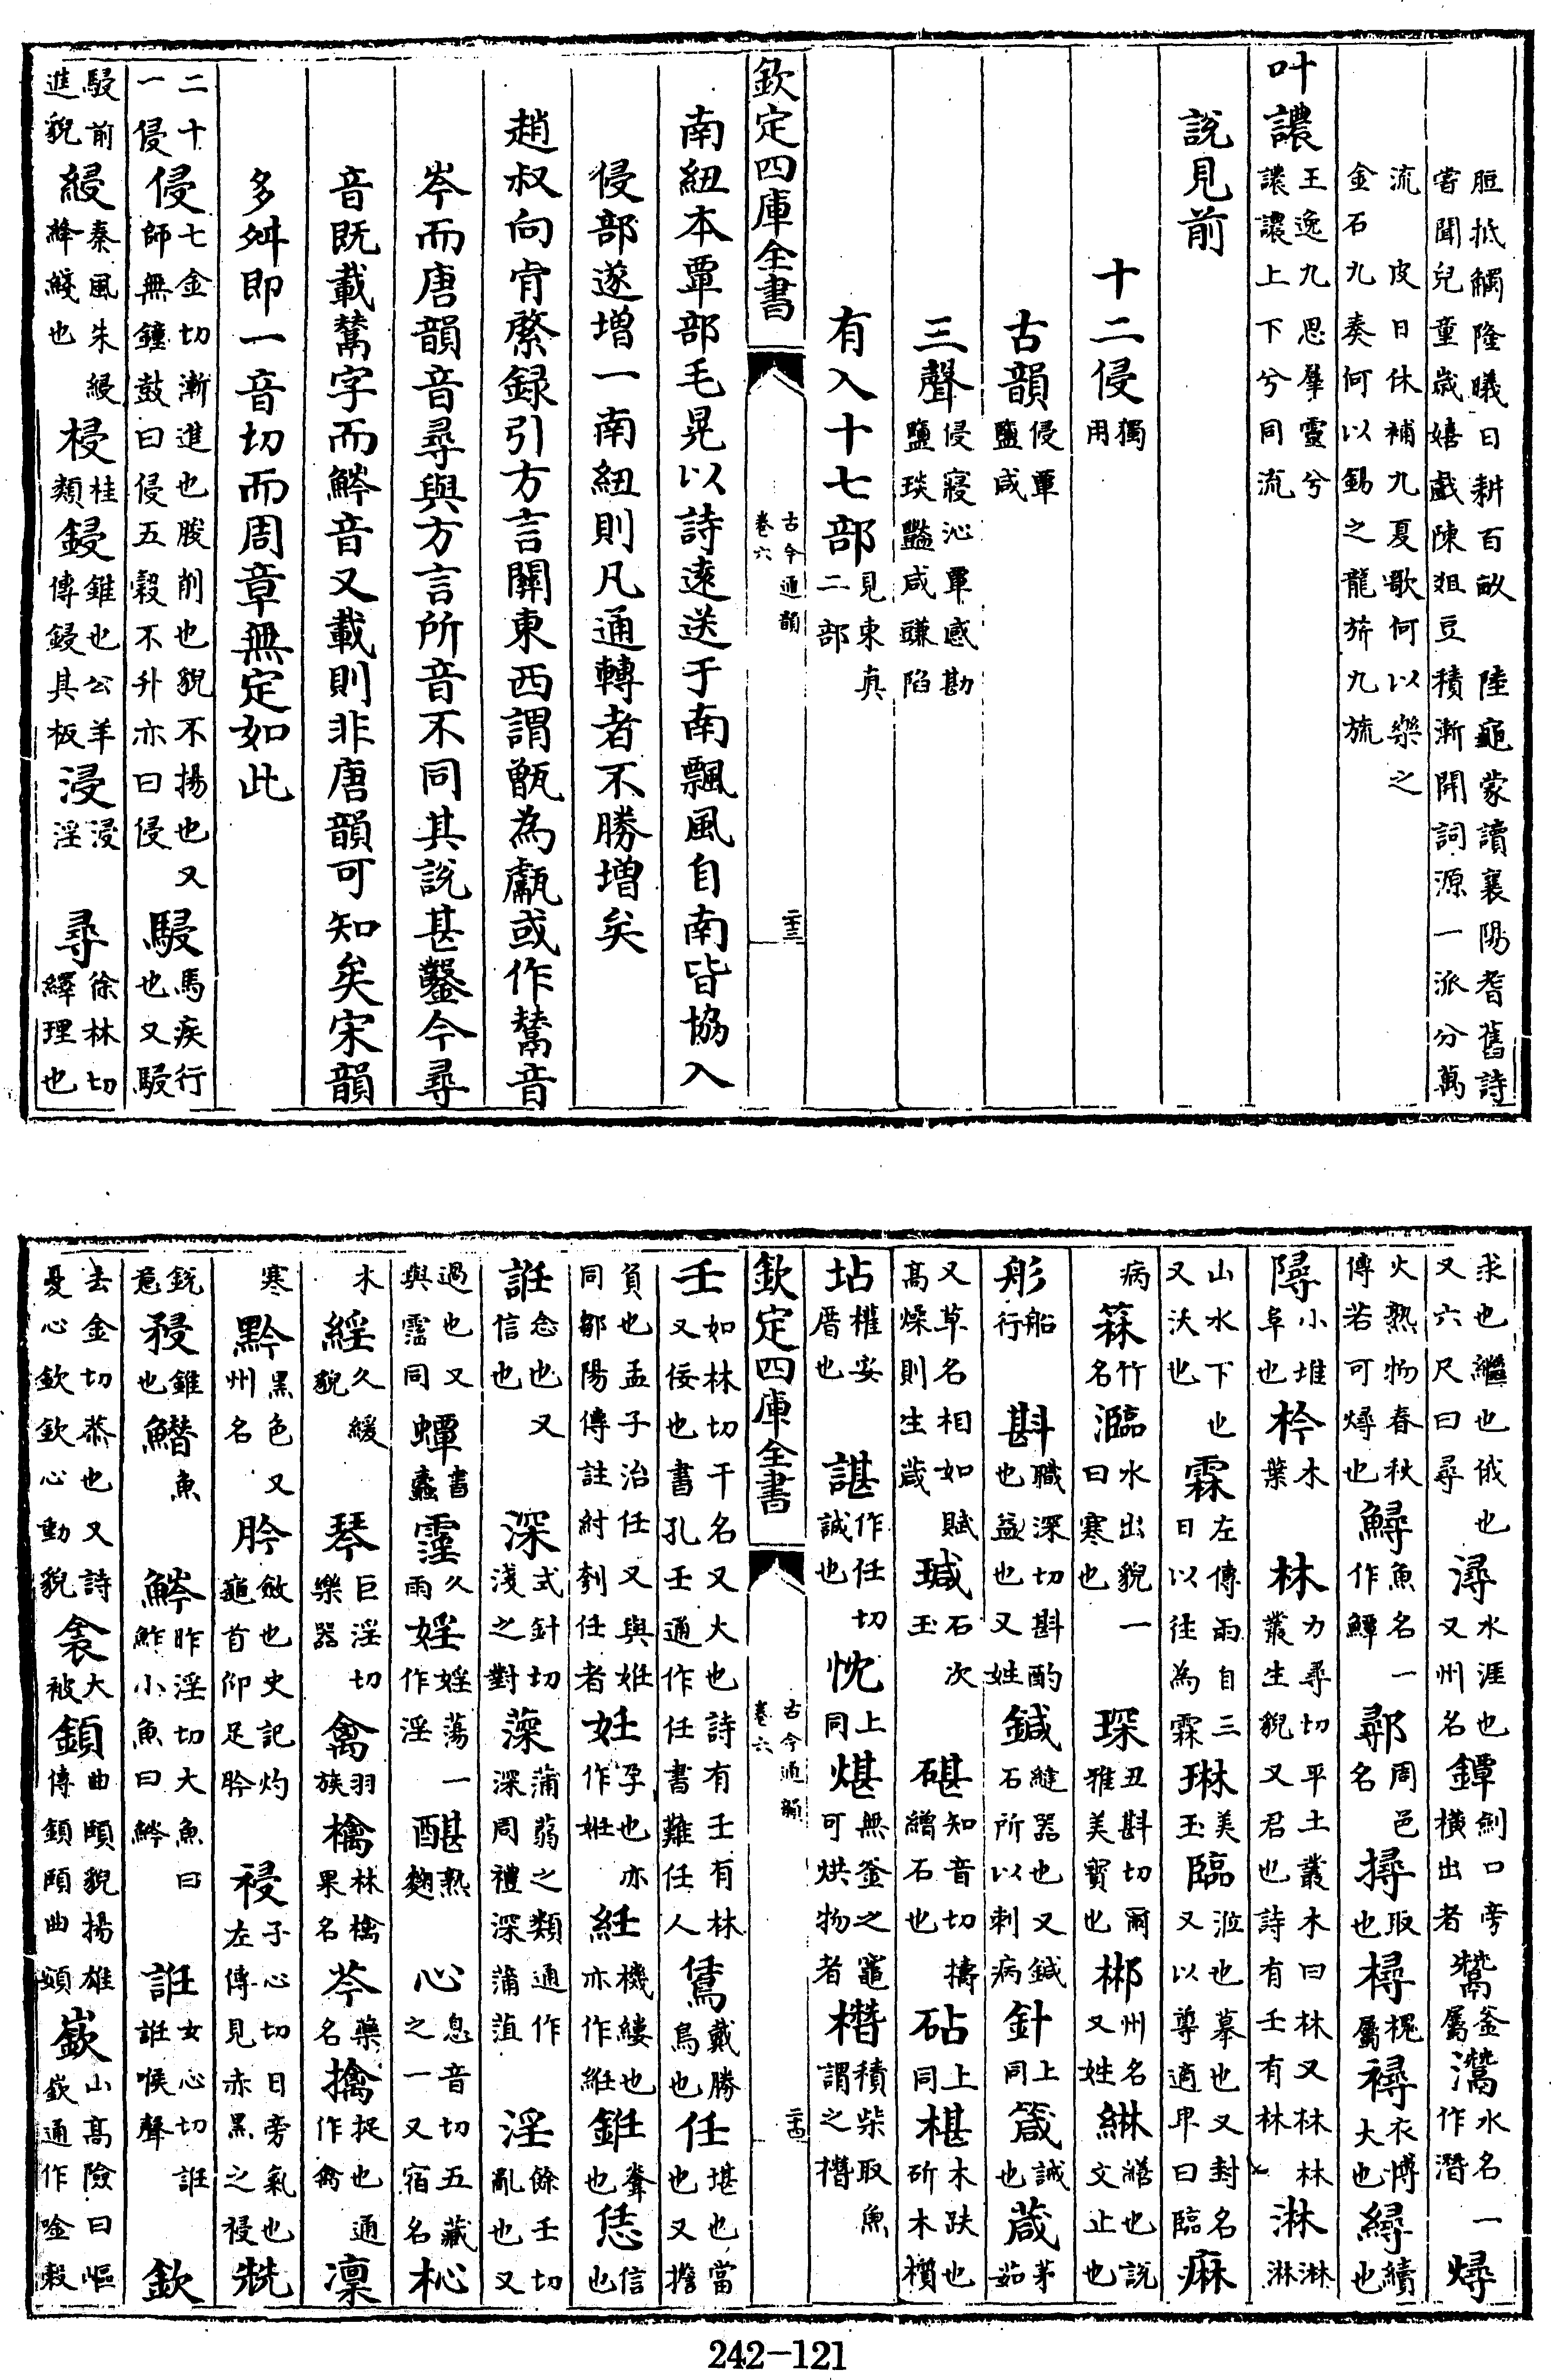 脰抵觸隆曦日耕百畝　陸龜蒙讀襄陽耆舊詩
嘗聞兒童歳嬉戲陳俎豆積漸開詞源一派分萬
流　皮日休補九夏歌何以樂之
金石九奏何以錫之龍旂九旒
叶譨王逸九思羣靈兮
譨譨上下兮同流
説見前
十二侵獨用
古韻侵覃鹽咸
三聲侵寢沁覃感勘
鹽琰豔咸豏陷
有入十七部見東真二部
欽定四庫全書
古今通韻
卷六
二十三
南紐本覃部毛晃以詩逺送于南飄風自南皆協入
侵部遂増一南紐則凡通轉者不勝増矣
趙叔向肯綮録引方言關東西謂甑為甗或作鬵音
岑而唐韻音尋與方言所音不同其説甚鑿今尋
音既載鬵字而䰼音又載則非唐韻可知矣宋韻
多舛即一音切而周章無定如此
二十一侵
侵七金切漸進也朘削也貌不揚也又
師無鐘鼓曰侵五穀不升亦曰侵
駸馬疾行也又駸
駸前進貌
綅秦風朱綅絳綫也
梫桂類
鋟錐也公羊傳鋟其板
浸浸淫
尋徐林切繹理也
求也繼也俄也又六尺曰尋
潯水涯也又州名
鐔劍口旁横出者
鬵釜屬
灊水名一作潛
燖
火熟物春秋傳若可燖也
鱘魚名一作鱏
鄩周邑名
撏取也
樳槐屬
襑衣博大也
繜續也
隯小堆阜也
枔木葉
林力尋切平土叢木曰林又林林
叢生貌又君也詩有壬有林
淋淋淋
山水下也又沃也
霖左傳雨自三日以徃為霖
琳美玉
臨涖也墓也又封名又以尊適卑曰臨
痳
病
箖竹名
㵉水出貌一曰寒也
琛丑斟切爾雅美寳也
郴州名又姓
綝繕也説文止也
彤船行
斟職深切斟酌也益也又姓
鍼縫器也又鍼石所以刺病
針上同
箴誡也
葴茅茹
又草名相如賦髙燥則生葴
瑊石次玉
碪知音切擣繒石也
砧上同
椹木趺也斫木櫍
坫櫂安厝也
諶作任切誠也
忱上同
煁無釜之竈可烘物者
槮積柴取魚謂之槮
欽定四庫全書
古今通韻
卷六
二十四
壬如林切干名又大也詩有壬有林
又佞也書孔壬通作任書難任人
鵀戴勝鳥也
任堪也當也又擔
負也孟子治任又與妊同鄒陽傳註紂刳任者
妊孕也亦作姙
紝機縷也亦作絍
銋韏也
恁信也
㤛念也又信也
深式針切淺之對
蒤蒲蒻之類通作深周禮深蒲菹
淫餘壬切亂也又
過也又與霪同
蟫書蠧
霪久雨
婬婬蕩一作淫
醓熟麴
心息音切五藏之一又宿名
杺
木
綅久緩貌
琴巨淫切樂器
禽羽族
檎林檎果名
芩藥名
擒捉也通作禽
凛
寒
黔黑色又州名
肣斂也史記灼龜首仰足肣
祲子心切日旁氣也左傳見赤黒之祲
兟
鋭意
䅾錐也
鱏魚
䰼昨淫切大魚曰鮓小魚曰䰼
誑女心切誑誑喉聲
欽
去金切恭也又詩憂心欽欽心動貌
衾大被
顉曲頤貌揚雄傳顉頤曲頞
嶔山髙險曰嶇嶔通作唫榖
242-121